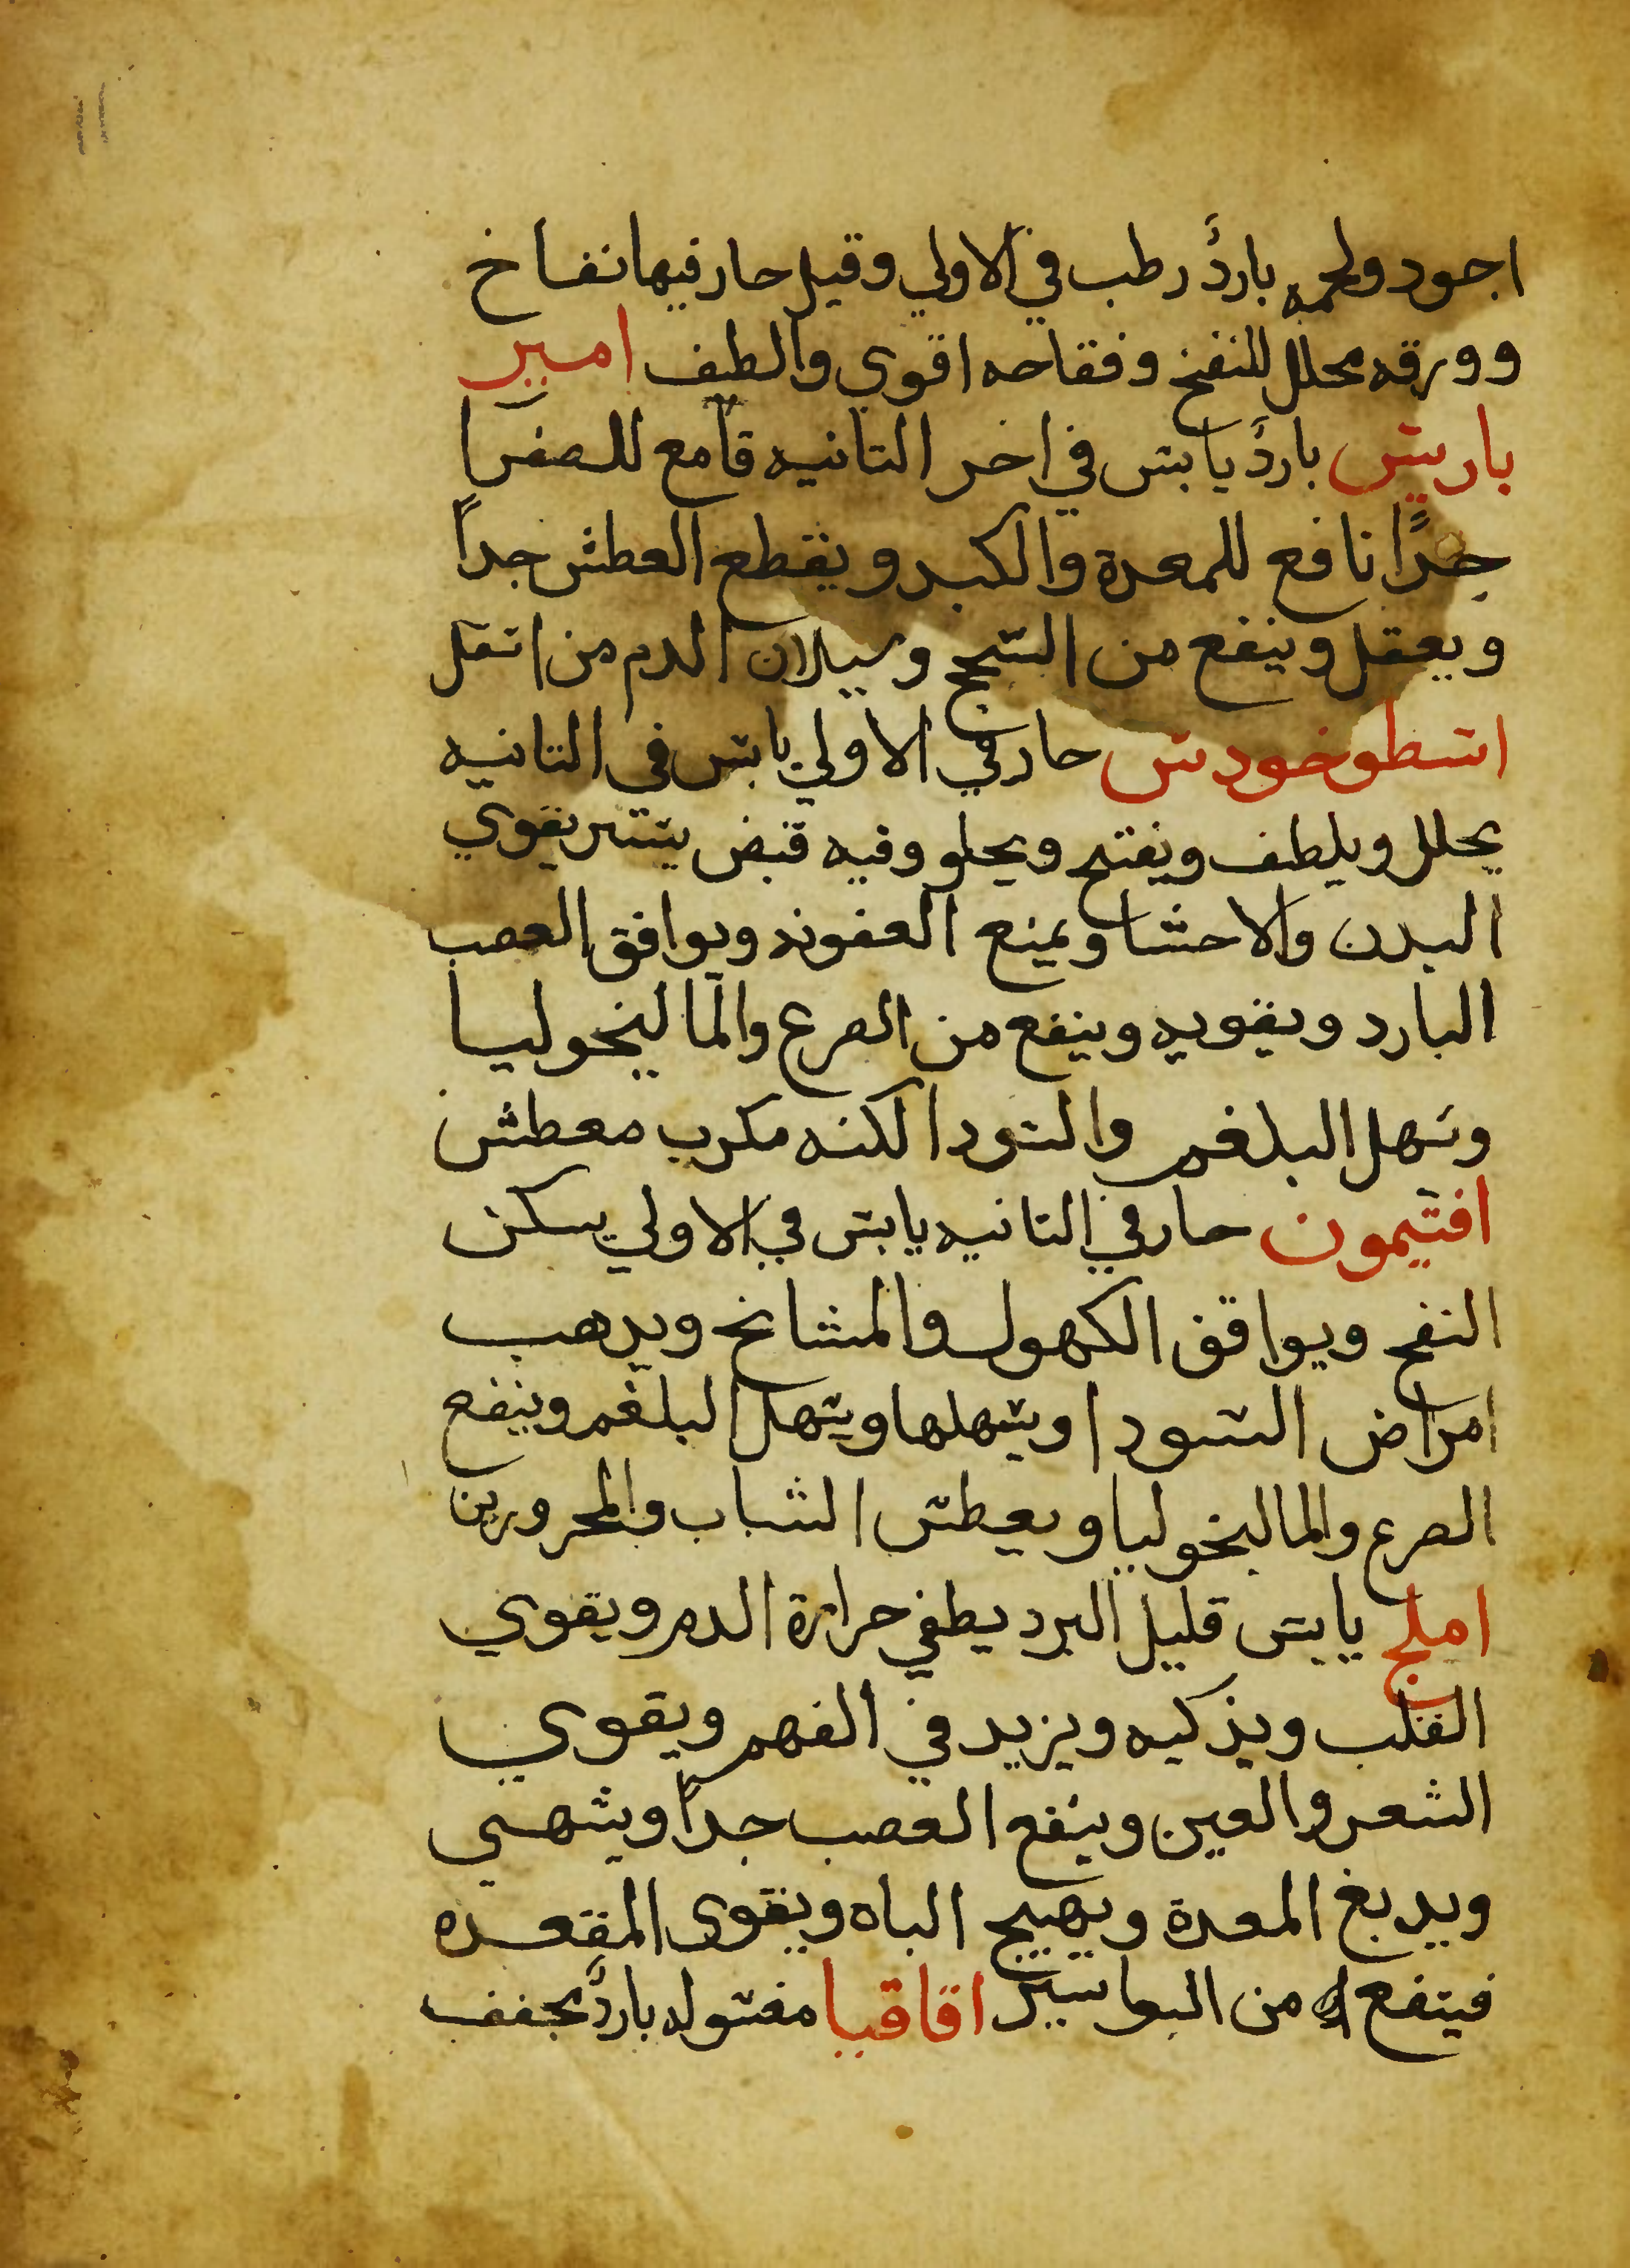 ١١
اجود ولحمه باردٌ رطب في الاولي وقيل حار فيها نفاخ
وورقه محلل للنفخ وفقاحه اقوي والطف امير
باريس باردٌ يابس في اخر التانيه قامع للصفرا
جدًا نافع للمعدة والكبد ويقطع العطش جداً
ويعقل وينفع من السحج وسيلان الدم من اسفل
اسطوخودس حار في الاولي يابس في التانيه
يحلل ويلطف ويفتح ويجلو وفيه قبض يسير يقوي
البدن والاحشا ويمنع العفونه ويوافق العصب
البارد ويقويه وينفع من الصرع والمالنخوليا
وسهل البلغم والسودا لكنه مكرب معطش
افتيمون حار في التانيه يابس في الاولي يسكن
النفخ ويوافق الكهول والمشايخ ويدهب
امراض السودا ويسهلها ويسهل البلغم وينفع
الصرع والمالنخوليا ويعطش الشباب والمحرورين
املج يابس قليل البرد يطفي حرارة الدم ويقوي
القلب ويذكيه ويزيد في الفهم ويقوي
الشعر والعين وينفع العصب جداً ويشهي
ويدبغ المعدة ويهيج الباه ويقوي المقعده
فينفع من البواسير اقاقيا مغسوله باردٌ يجفف